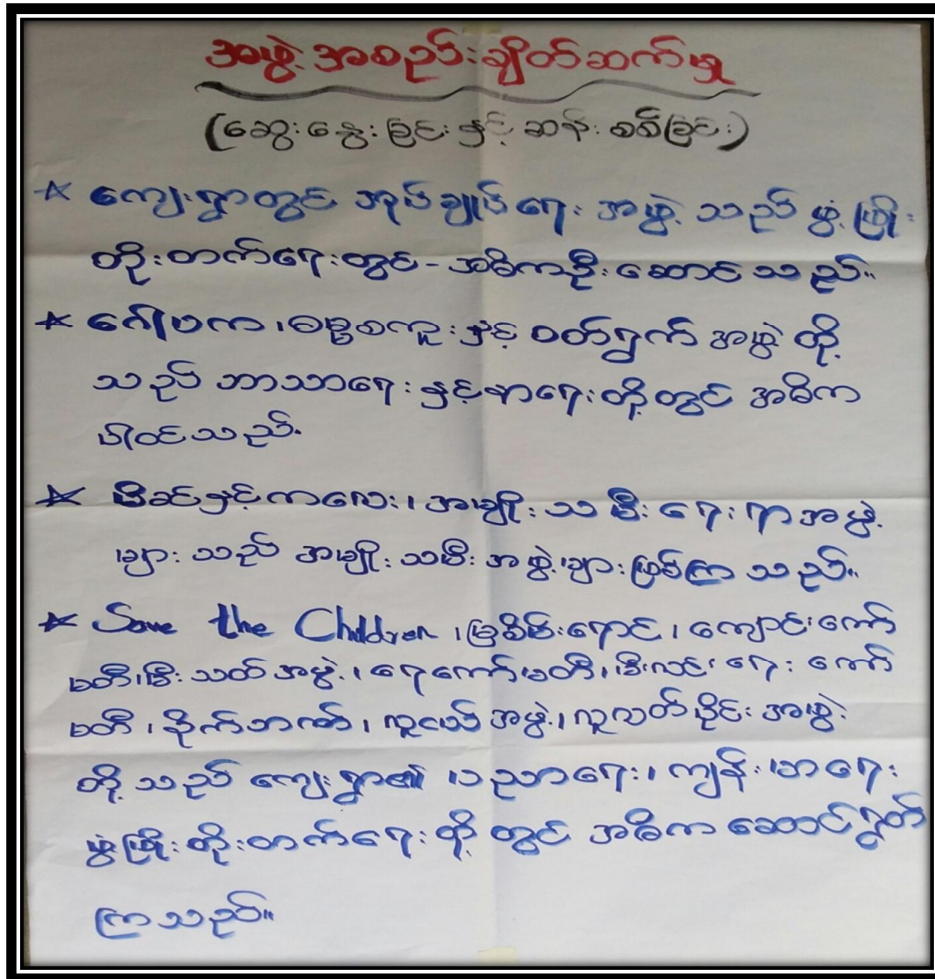 အဖွဲ့အစည်းချိတ်ဆက်မှု
(ဆွေးနွေးခြင်းနှင့် ဆန်းစစ်ခြင်း)
* ကျေးရွာတွင် အုပ်ချုပ်ရေး အဖွဲ့ သည် ဖွံ့ဖြိုး
တိုးတက်ရေးတွင် - အဓိကဦးဆောင်သည်။
* ဂေါပက၊ စေတနာ့ နှင့် ဝတ်ရွတ် အဖွဲ့ တို့
သည် ဘာသာရေး နှင့် နာရေးတို့တွင် အဓိက
ပါဝင်သည်။
* မိခင်နှင့်ကလေး၊ အမျိုးသမီးရေးရာအဖွဲ့
များ သည် အမျိုးသမီးအဖွဲ့များဖြစ်ကြသည်။
* Save the Children ၊ မြစိမ်းရောင်၊ ကျောင်းကော်
မတီ၊ မီးသတ်အဖွဲ့၊ ရေကော်မတီ၊ မီးလင်းရေး ကော်
မတီ၊ ဘဏ်၊ လူငယ်အဖွဲ့၊ လူလတ်ပိုင်းအဖွဲ့
တို့သည် ကျေးရွာ၏ ပညာရေး၊ ကျန်းမာရေး
ဖွံ့ဖြိုးတိုးတက်ရေးတို့တွင် အဓိကဆောင်ရွက်
ကြသည်။